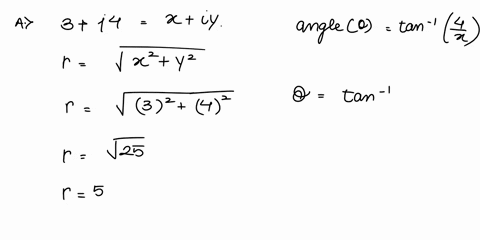 A> 3 + i4 = x + iy.
r = √(x² + y²)
r = √((3)² + (4)²)
r = √25
r = 5
angle(θ) = tan⁻¹(4/x)
θ = tan⁻¹